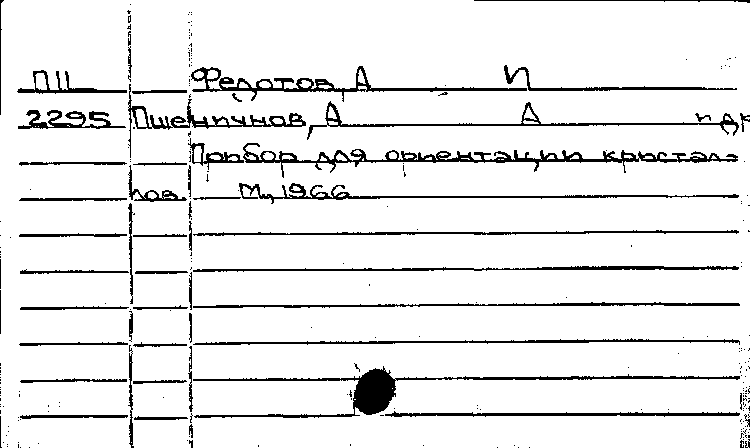 П11 Федотов, А И
2295 Пшеничнов, А А и др
Прибор для ориентации кристал-
лов. М., 1966